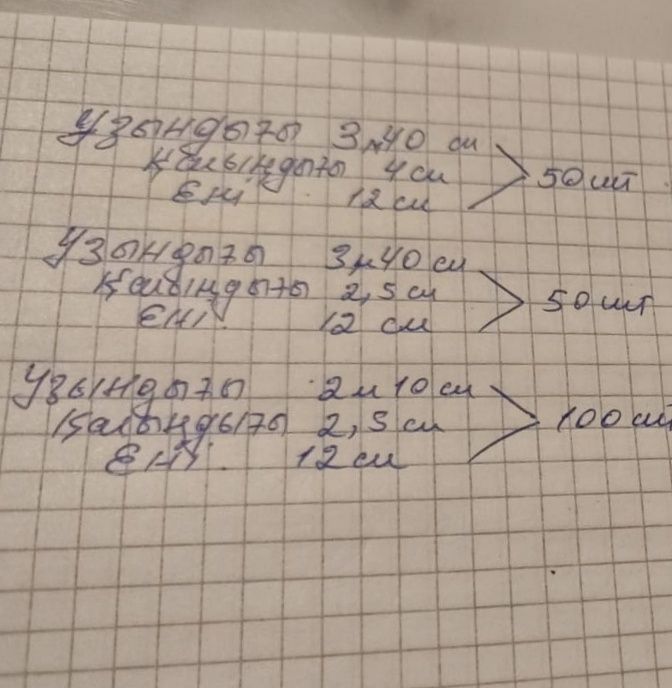 Ұзындығы 3м40 см
Қалыңдығы 4 см > 50 шт
Ені 12 см
Ұзындығы 3м40 см
Қалыңдығы 2,5 см > 50 шт
Ені 12 см
Ұзындығы 2м10 см
Қалыңдығы 2,5 см > 100 шт
Ені 12 см